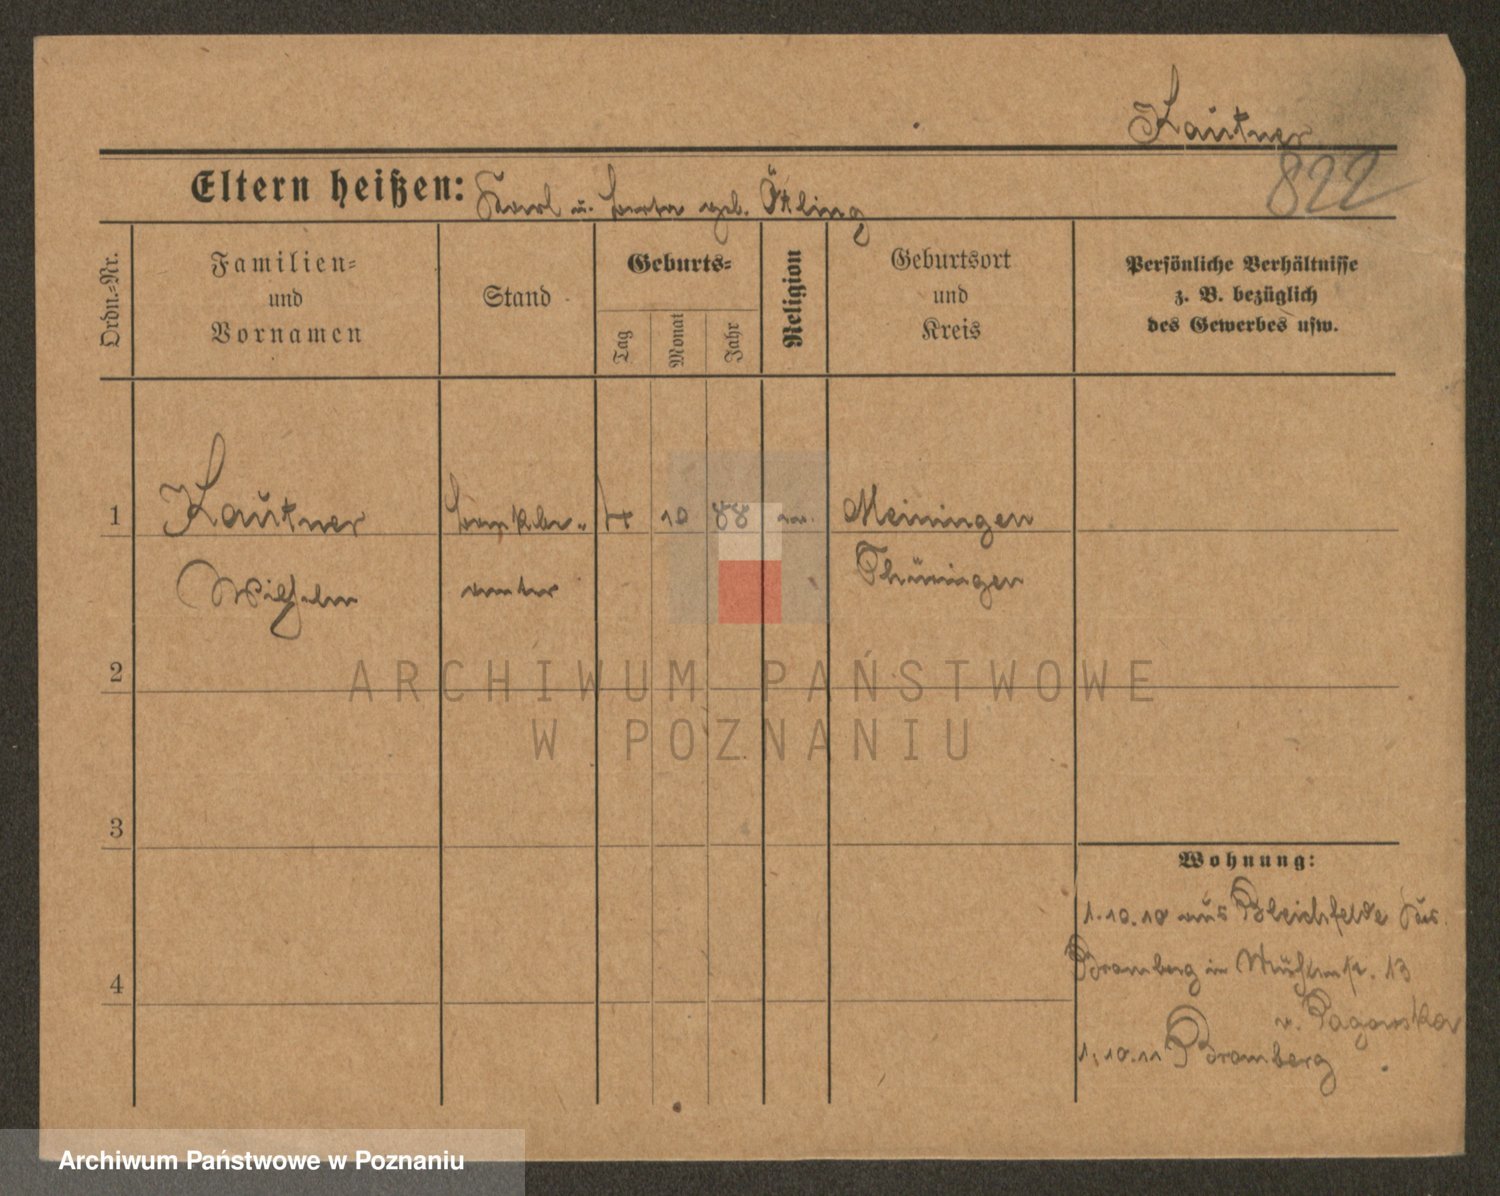 Kautner
822
Eltern heißen: Karl u. geb. Ötling
Ordn.-Nr.
Familien-
und
Vornamen
Stand
Geburts-
Tag
Monat
Jahr
Religion
Geburtsort
und
Kreis
Persönliche Verhältnisse
z. B. bezüglich
des Gewerbes usw.
1
Kautner
4
10
88
Meiningen
Wilhelm
Thüringen
2
ARCHIWUM PAŃSTWOWE
W POZNANIU
3
Wohnung:
1.10.10 aus Bleichfelde Krs.
Bromberg in 13
4
1.10.11 Bromberg
Archiwum Państwowe w Poznaniu